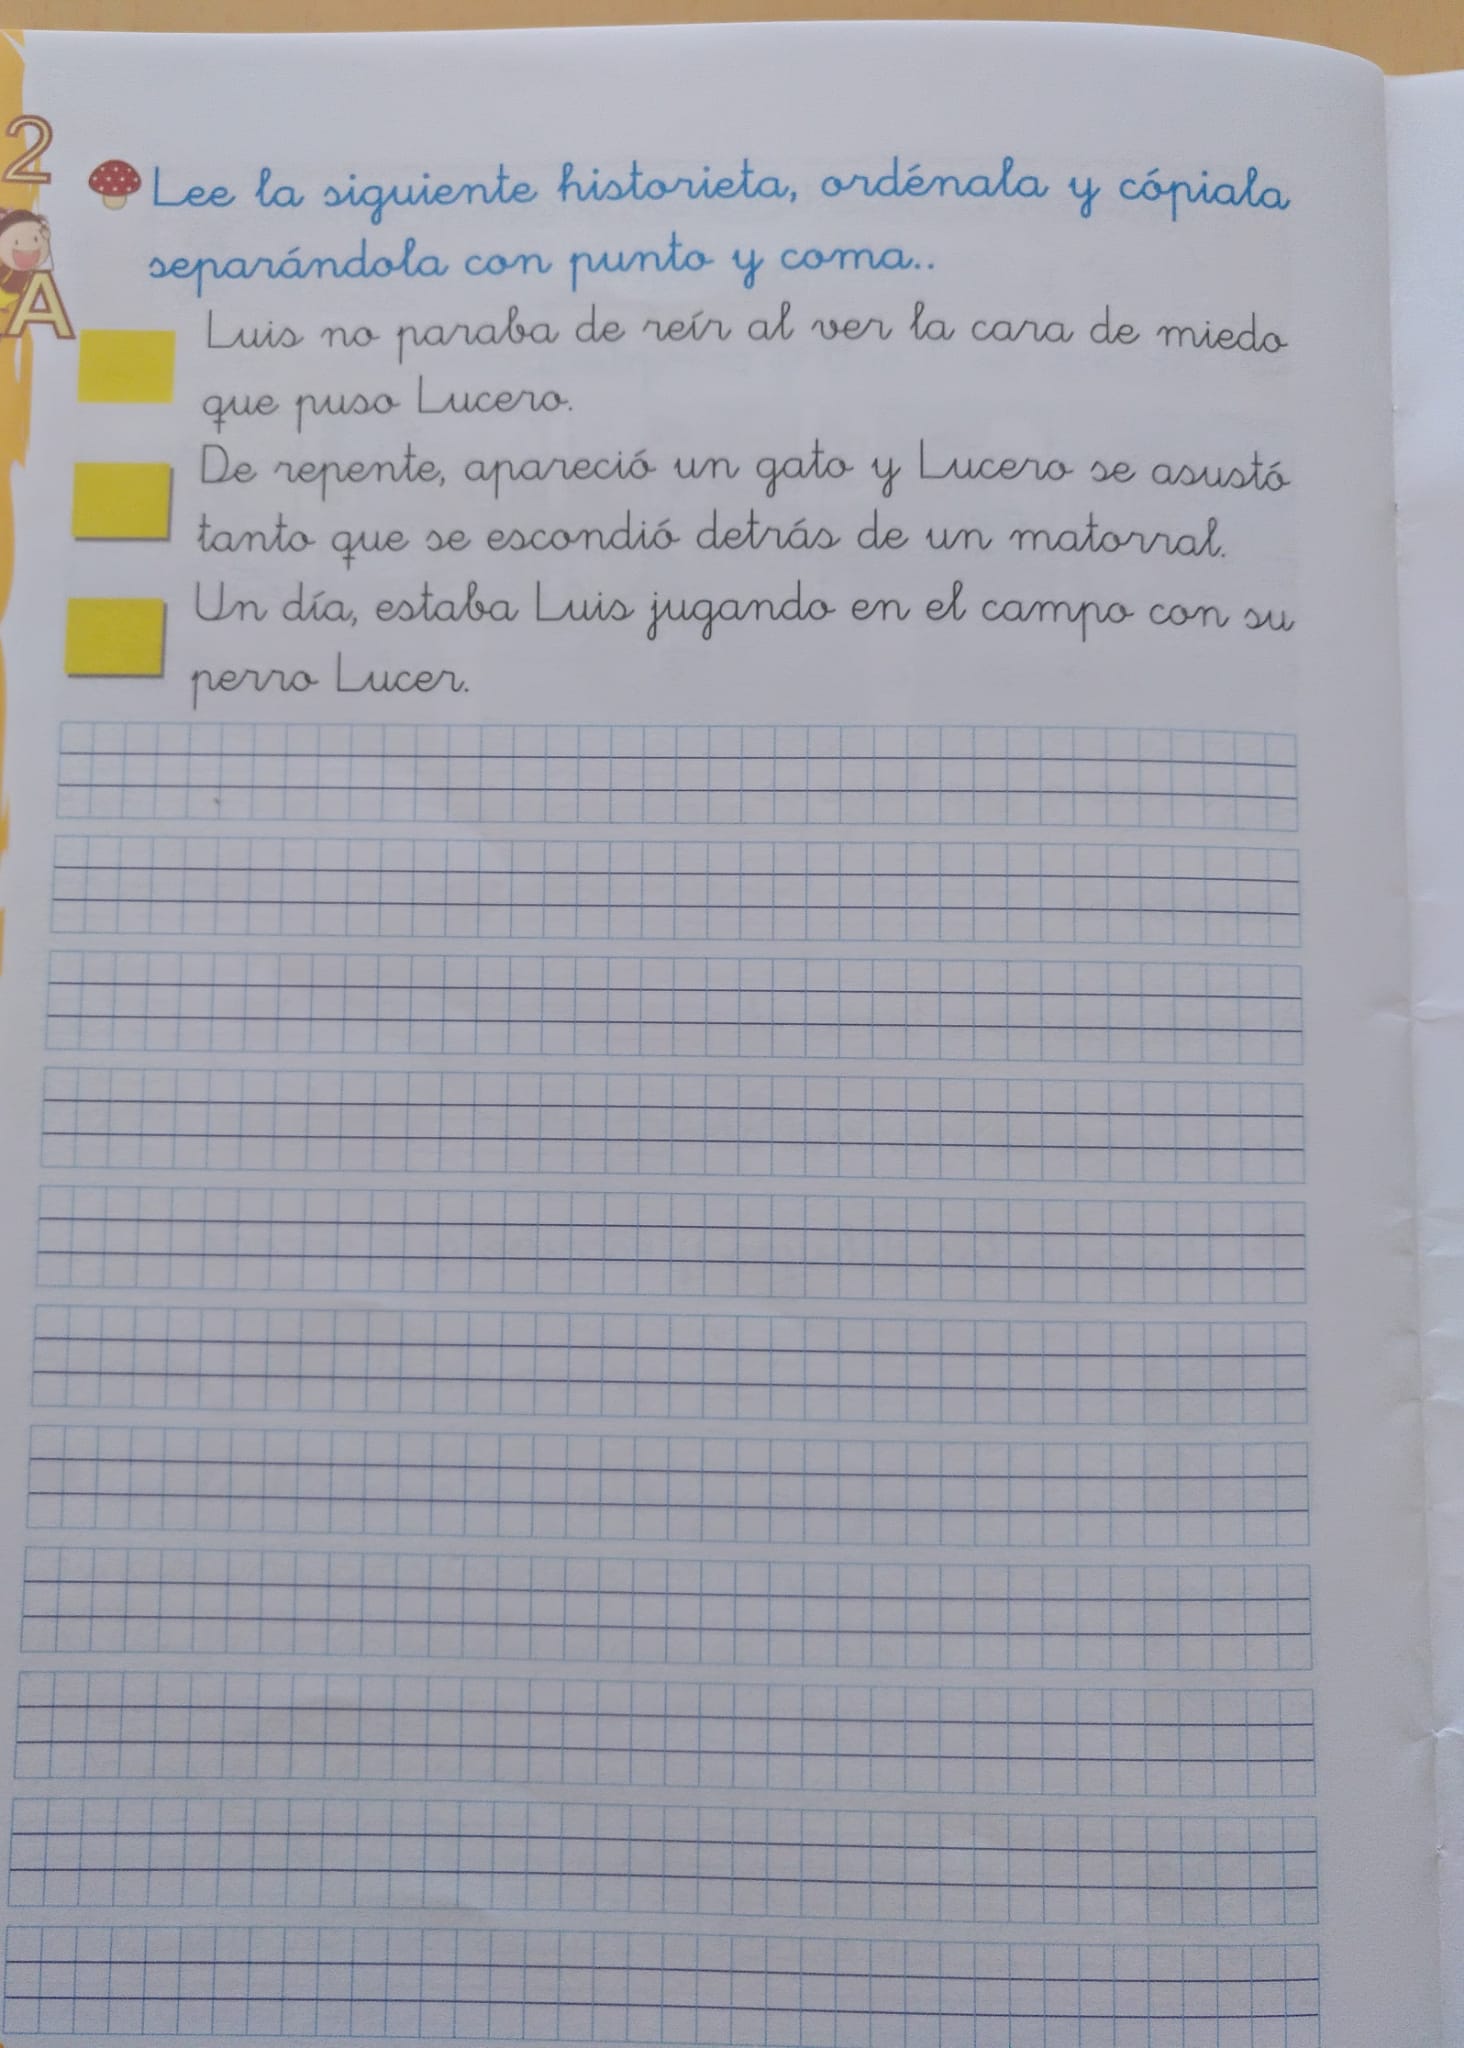 2
A
Lee la siguiente historieta, ordénala y cópiala
separándola con punto y coma..
Luis no paraba de reír al ver la cara de miedo
que puso Lucero.
De repente, apareció un gato y Lucero se asustó
tanto que se escondió detrás de un matorral.
Un día, estaba Luis jugando en el campo con su
perro Lucer.